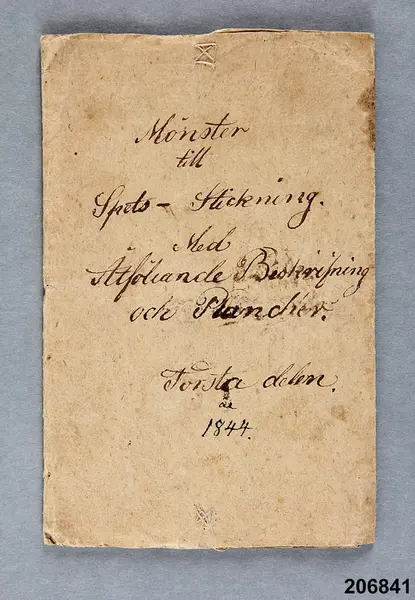 Mönster
till
Spets - Stickning.
Med
Åtföljande Beskrifning
och Plancher.
Första delen.
1844.
206841